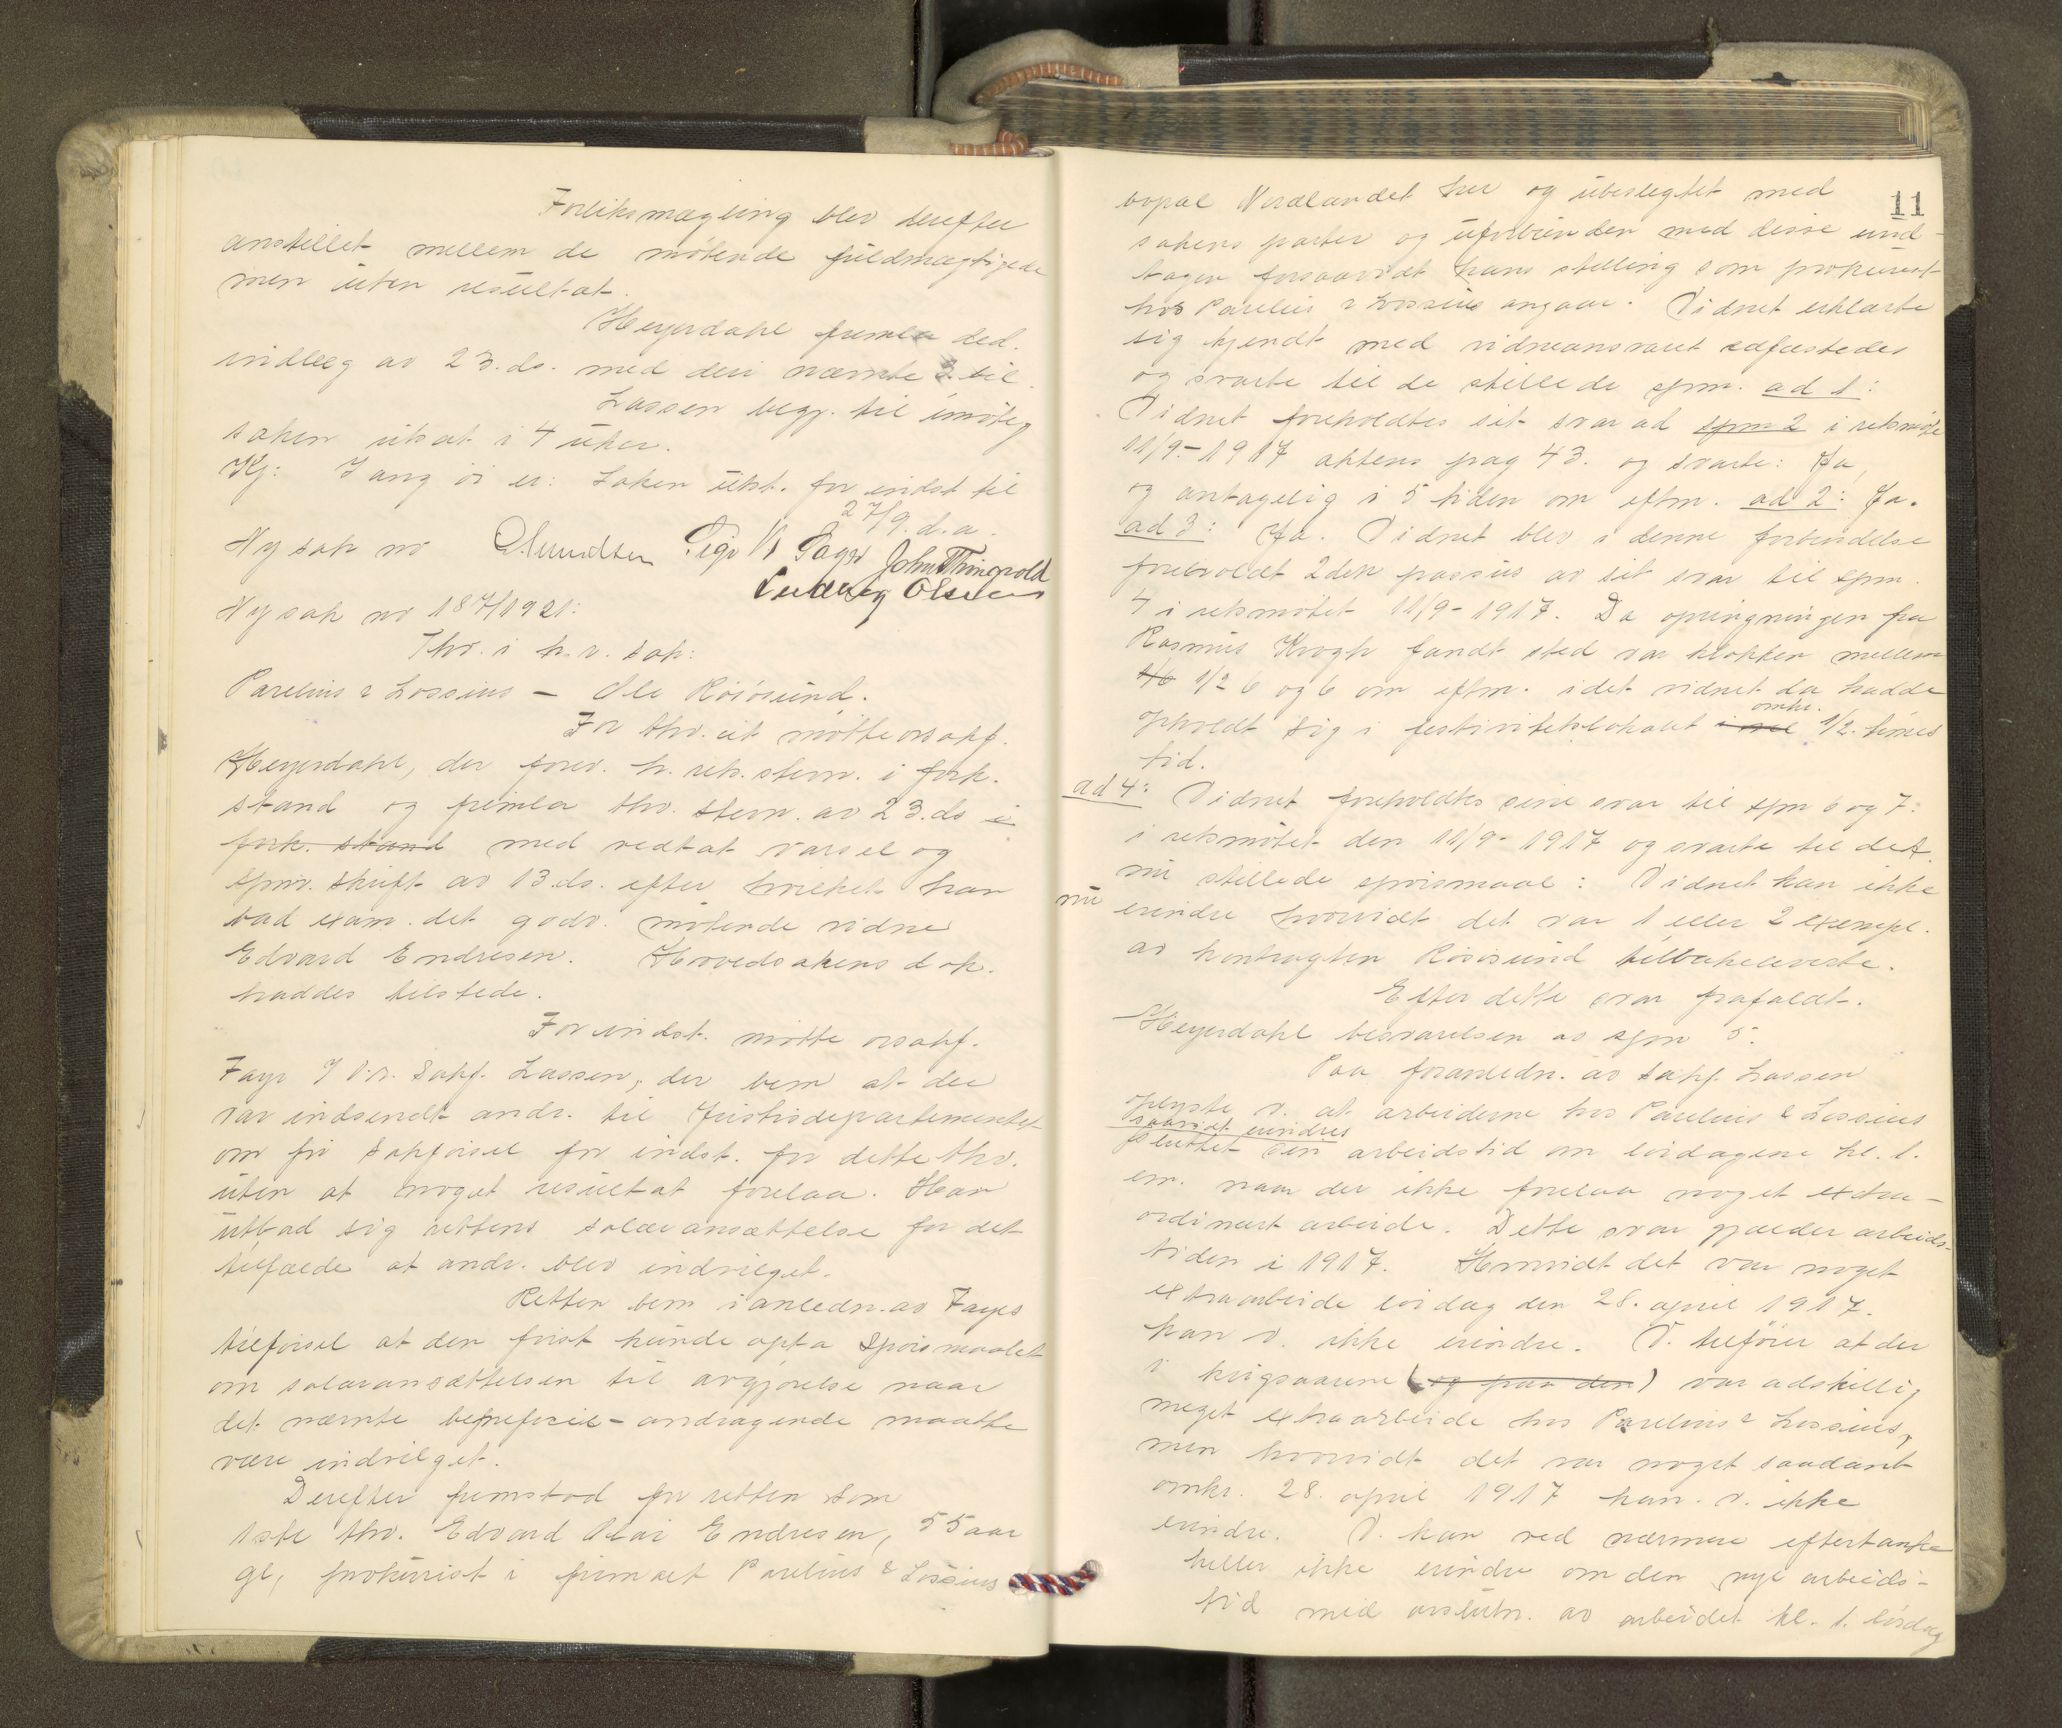 Forliksmægling blev derefter
anstillet mellem de møtende fuldmægtigede
men uten resultat.
Heyerdahl fremla ded.
indlæg av 23. ds. med deri nævnte 3 bil.
Lassen begj. til imøteg
saken utsat i 4 uker.
Kj: I ang øi er: Saken utst. for indst til
27/9. d.a.
Ny sak no Amundsen Sigv
John Thingvold
Ludvig Olsen
Ny sak no 187/1921:
Thv. i h.r. sak:
Parelius & Lossius – Ole Röiösund.
For thv. cit møtte orsakf.
Heyerdahl, der forev. h. rets. stevn. i fork.
stand og fremla thv. stevn. av 23. ds i
fork. stand med vedtat varsel og
spm. skrift av 13. ds. efter hvilket han
bad exam. det godv. møtende vidne
Edvard Endresen. Hovedsakens dok.
haddes tilstede.
For indst. møtte orsakf.
Faye f o.r. sakf. Lassen, der bem at der
var indsendt andr. til Justisdepartementet
om fri sakførsel for indst. for dette thv.
uten at noget resultat forelaa. Han
utbad sig rettens salæransættelse for det
tilfælde at andr. blev indvilget.
Retten bem i anledn. av Fayes
tilførsel at den først kunde opta spørsmaalet
om salæransættelsen til avgjørelse naar
det nævnte beneficie-andragende maatte
være indvilget.
Derefter fremstod for retten som
1ste thv. Edvard Olai Endresen, 55 aar
gl, prokurist i firmaet Parelius & Lossius
11
bopæl Nordlandet her og ubeslegtet med
sakens parter og uforbunden med disse und-
tagen forsaavidt hans stilling som prokurist
hos Parelius & Lossius angaar. Vidnet erklærte
sig kjendt med vidneansvaret edfæstedes
og svarte til de stillede spm. ad 1:
Vidnet foreholdtes sit svar ad spm 2 i retsmøte
11/9-1917 aktens pag 43. og svarte: Ja,
og antagelig i 5 tiden om eftm. ad 2: Ja.
ad 3: Ja. Vidnet blev i denne forbindelse
foreholdt 2den passus av sit svar til spm.
4 i retsmøtet 11/9-1917. Da opringningen fra
Rasmus Krogh fandt sted var klokken mellem
1/6 1/2 6 og 6 om eftm. idet vidnet da hadde
omkr.
opholdt sig i festivitetslokalet i vel 1/2. times
tid.
ad 4: Vidnet foreholdtes sine svar til spm 6 og 7:
i retsmøtet den 11/9-1917 og svarte til det
nu stillede spørsmaal: Vidnet kan ikke
nu erindre hvorvidt det var 1 eller 2 exempl.
av kontragten Röiösund tilbakeleverte.
Efter dette svar frafaldt.
Heyerdahl besvarelsen av spm 5.
Paa foranledn. av sakf. Lassen
oplyste v. at arbeiderne hos Parelius & Lossius
saavidt erindres
sluttet sin arbeidstid om lørdagene kl. 1.
em. naar der ikke forelaa noget extra-
ordinært arbeide. Dette svar gjælder arbeids-
tiden i 1917. Hvorvidt det var noget
extraarbeide lørdag den 28. april 1917.
kan v. ikke erindre. V. tilfører at der
i krigsaarene (og paa den) var adskillig
meget extraarbeide hos Parelius & Lossius,
men hvorvidt det var noget saadant
omkr. 28. april 1917 kan. v. ikke
erindre. V. kan ved nærmere eftertanke
heller ikke erindre om den nye arbeids-
tid med avslutn. av arbeidet kl. 1. lørdag